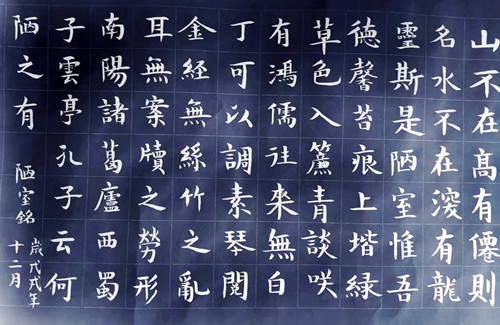 山不在高有僊則
名水不在深有龍
靈斯是陋室惟吾
德馨苔痕上堦緑
草色入簾青談咲
有鴻儒往來無白
丁可以調素琴閱
金經無絲竹之亂
耳無案牘之勞形
南陽諸葛廬西蜀
子雲亭孔子云何
陋之有 陋室銘
歲戊戌年
十二月